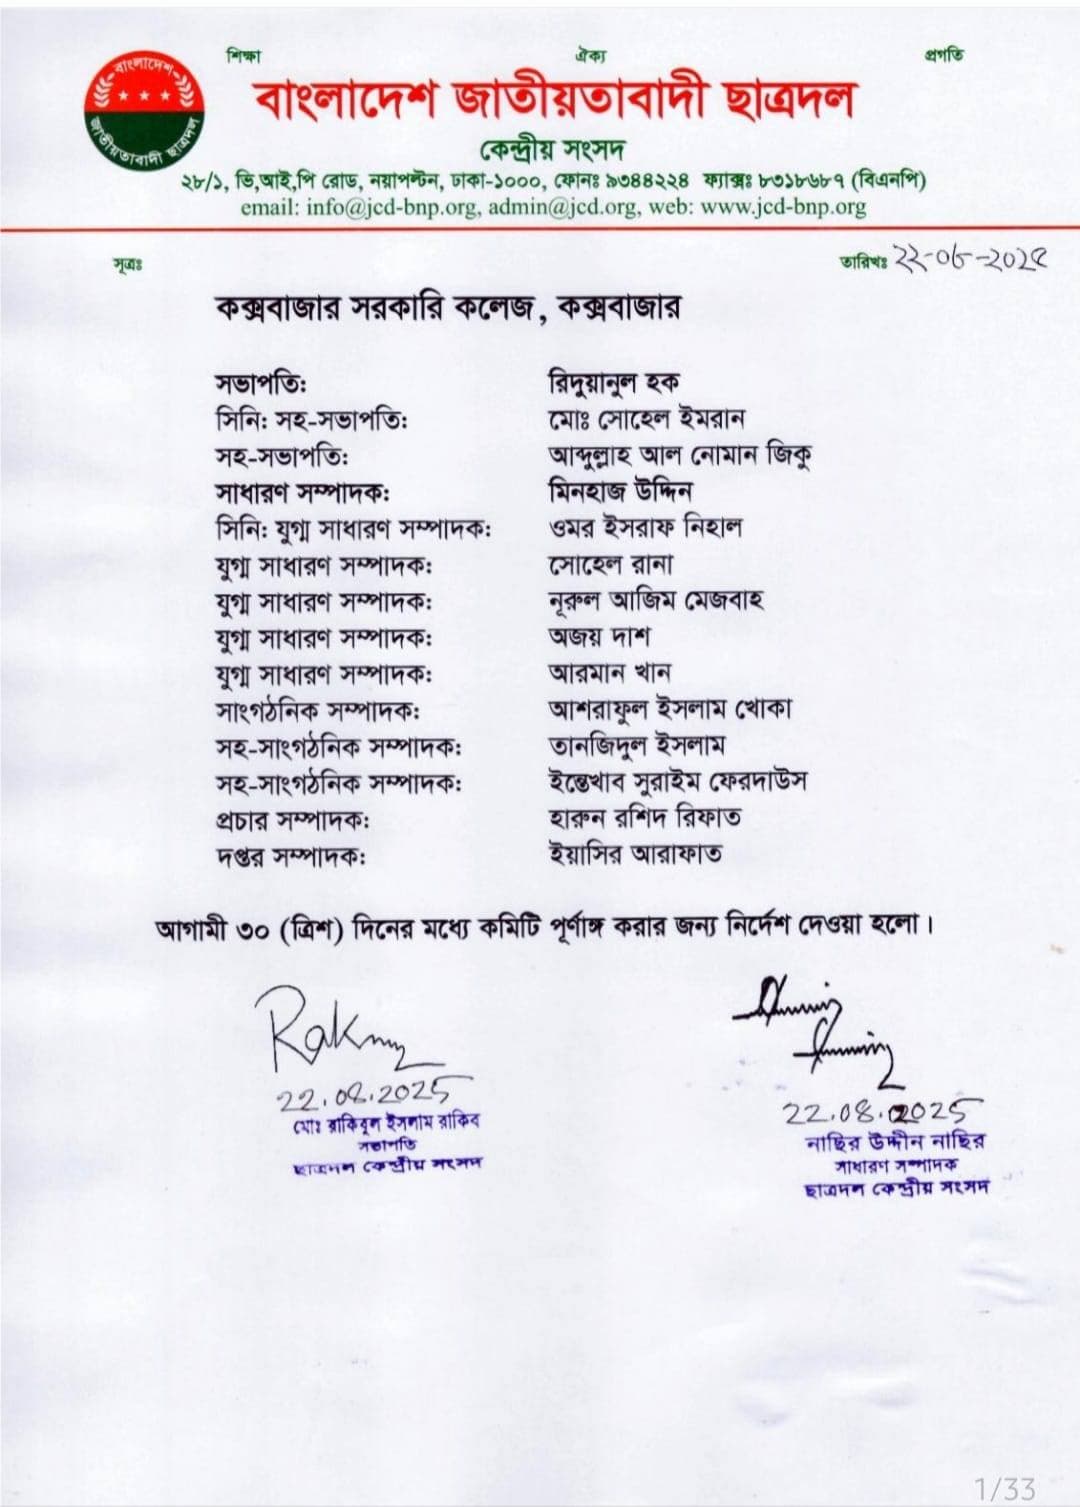 শিক্ষা ঐক্য প্রগতি
বাংলাদেশ
জাতীয়তাবাদী ছাত্রদল
বাংলাদেশ জাতীয়তাবাদী ছাত্রদল
কেন্দ্রীয় সংসদ
২৮/১, ভি,আই,পি রোড, নয়াপল্টন, ঢাকা-১০০০, ফোনঃ ৯৩৪৪২২৪ ফ্যাক্সঃ ৮৩১৮৬৮৭ (বিএনপি)
email: info@jcd-bnp.org, admin@jcd.org, web: www.jcd-bnp.org
সূত্রঃ তারিখঃ ২২-০৮-২০২৫
কক্সবাজার সরকারি কলেজ, কক্সবাজার
সভাপতি: রিদুয়ানুল হক
সিনি: সহ-সভাপতি: মোঃ সোহেল ইমরান
সহ-সভাপতি: আব্দুল্লাহ আল নোমান জিকু
সাধারণ সম্পাদক: মিনহাজ উদ্দিন
সিনি: যুগ্ম সাধারণ সম্পাদক: ওমর ইসরাফ নিহাল
যুগ্ম সাধারণ সম্পাদক: সোহেল রানা
যুগ্ম সাধারণ সম্পাদক: নূরুল আজিম মেজবাহ
যুগ্ম সাধারণ সম্পাদক: অজয় দাশ
যুগ্ম সাধারণ সম্পাদক: আরমান খান
সাংগঠনিক সম্পাদক: আশরাফুল ইসলাম খোকা
সহ-সাংগঠনিক সম্পাদক: তানজিদুল ইসলাম
সহ-সাংগঠনিক সম্পাদক: ইন্তেখাব সুরাইম ফেরদাউস
প্রচার সম্পাদক: হারুন রশিদ রিফাত
দপ্তর সম্পাদক: ইয়াসির আরাফাত
আগামী ৩০ (ত্রিশ) দিনের মধ্যে কমিটি পূর্ণাঙ্গ করার জন্য নির্দেশ দেওয়া হলো।
22.08.2025
মোঃ রাকিবুল ইসলাম রাকিব
সভাপতি
ছাত্রদল কেন্দ্রীয় সংসদ
22.08.2025
নাছির উদ্দীন নাছির
সাধারণ সম্পাদক
ছাত্রদল কেন্দ্রীয় সংসদ
1/33